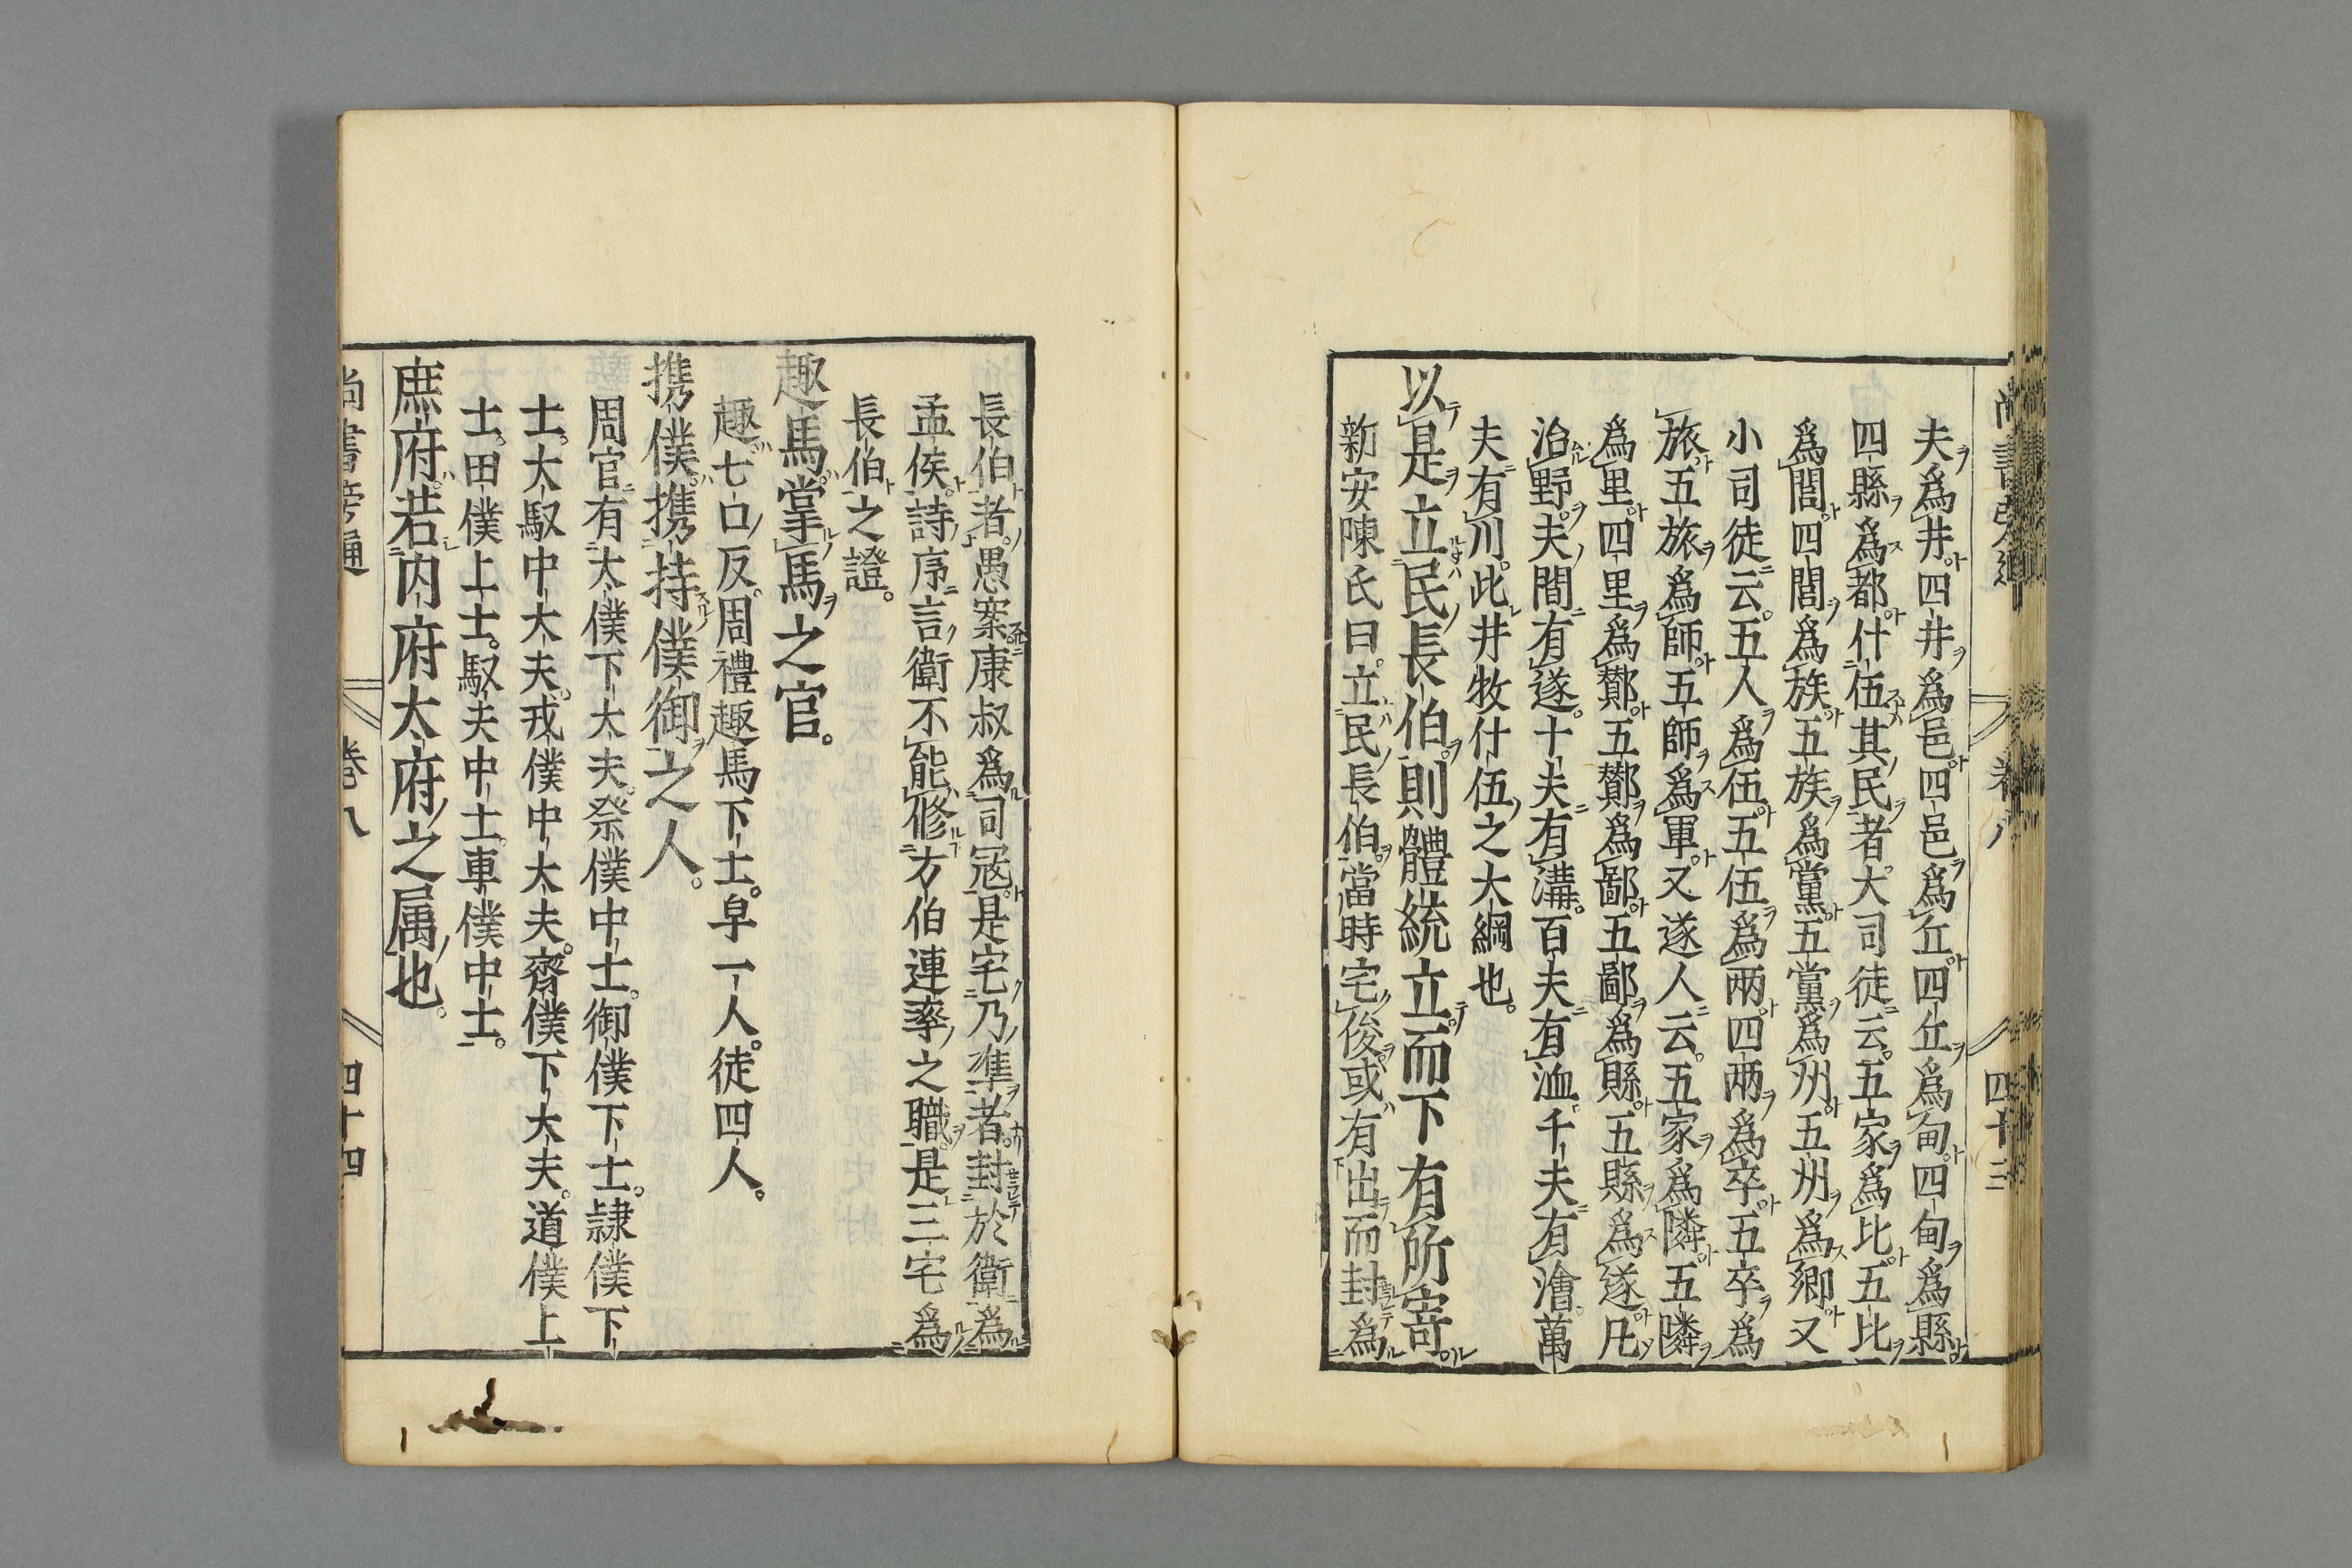 夫爲井四井爲邑四邑爲丘四丘爲甸四甸爲縣
四縣爲都什伍其民者大司徒云五家爲比五比
爲閭四閭爲族五族爲黨五黨爲州五州爲鄉又
小司徒云五人爲伍五伍爲兩四兩爲卒五卒爲
旅五旅爲師五師爲軍又遂人云五家爲隣五隣
爲里四里爲酇五酇爲鄙五鄙爲縣五縣爲遂凡
治野夫間有遂十夫有溝百夫有洫千夫有澮萬
夫有川此井牧什伍之大綱也
以是立民長伯則體統立而下有所寄
新安陳氏曰立民長伯當時宅俊或有出而封爲
長伯者愚案康叔爲司冦是宅乃準者封於衛爲
孟侯詩序言衛不能修方伯連率之職是三宅爲
長伯之證
趣馬掌馬之官
趣七口反周禮趣馬下士皁一人徒四人
携僕携持僕御之人
周官有太僕下大夫祭僕中士御僕下士隷僕下
士大馭中大夫戎僕中大夫齊僕下大夫道僕上
士田僕上士馭夫中士車僕中士
庶府若内府太府之属也
尚書旁通 卷八 四十四